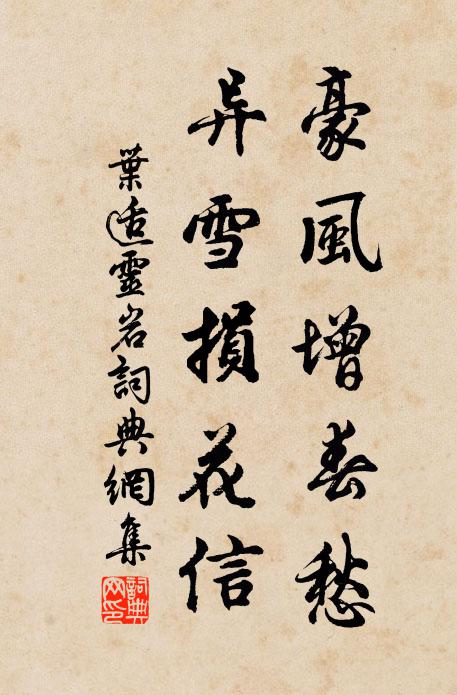 豪風增春愁
异雪損花信
葉适靈岩詞典網集
詞典网印